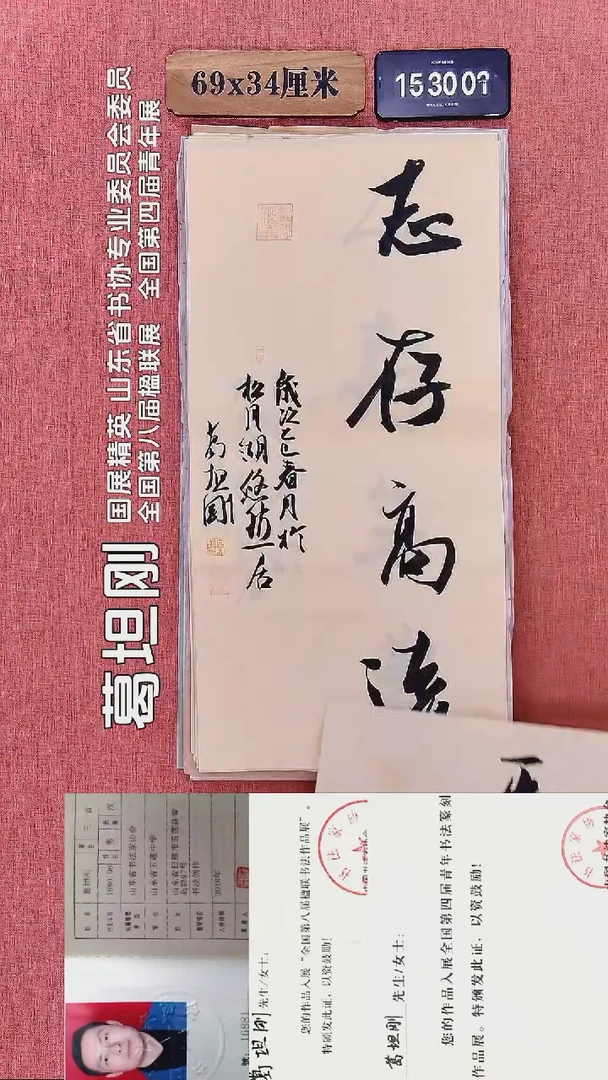 69x34厘米
15 30 01
志存高远
岁次乙巳春月于
松月湖悠然居
葛坦刚
葛坦刚
国展精英 山东省书协专业委员会委员
全国第八届楹联展 全国第四届青年展
山东省书法家协会
山东省五莲中学
书法创作
2018年
号: 16881
葛坦刚 先生/女士:
您的作品入展“全国第八届楹联书法作品展”。
特颁发此证，以资鼓励!
葛坦刚 先生/女士:
您的作品入展全国第四届青年书法篆刻
作品展。特颁发此证，以资鼓励!